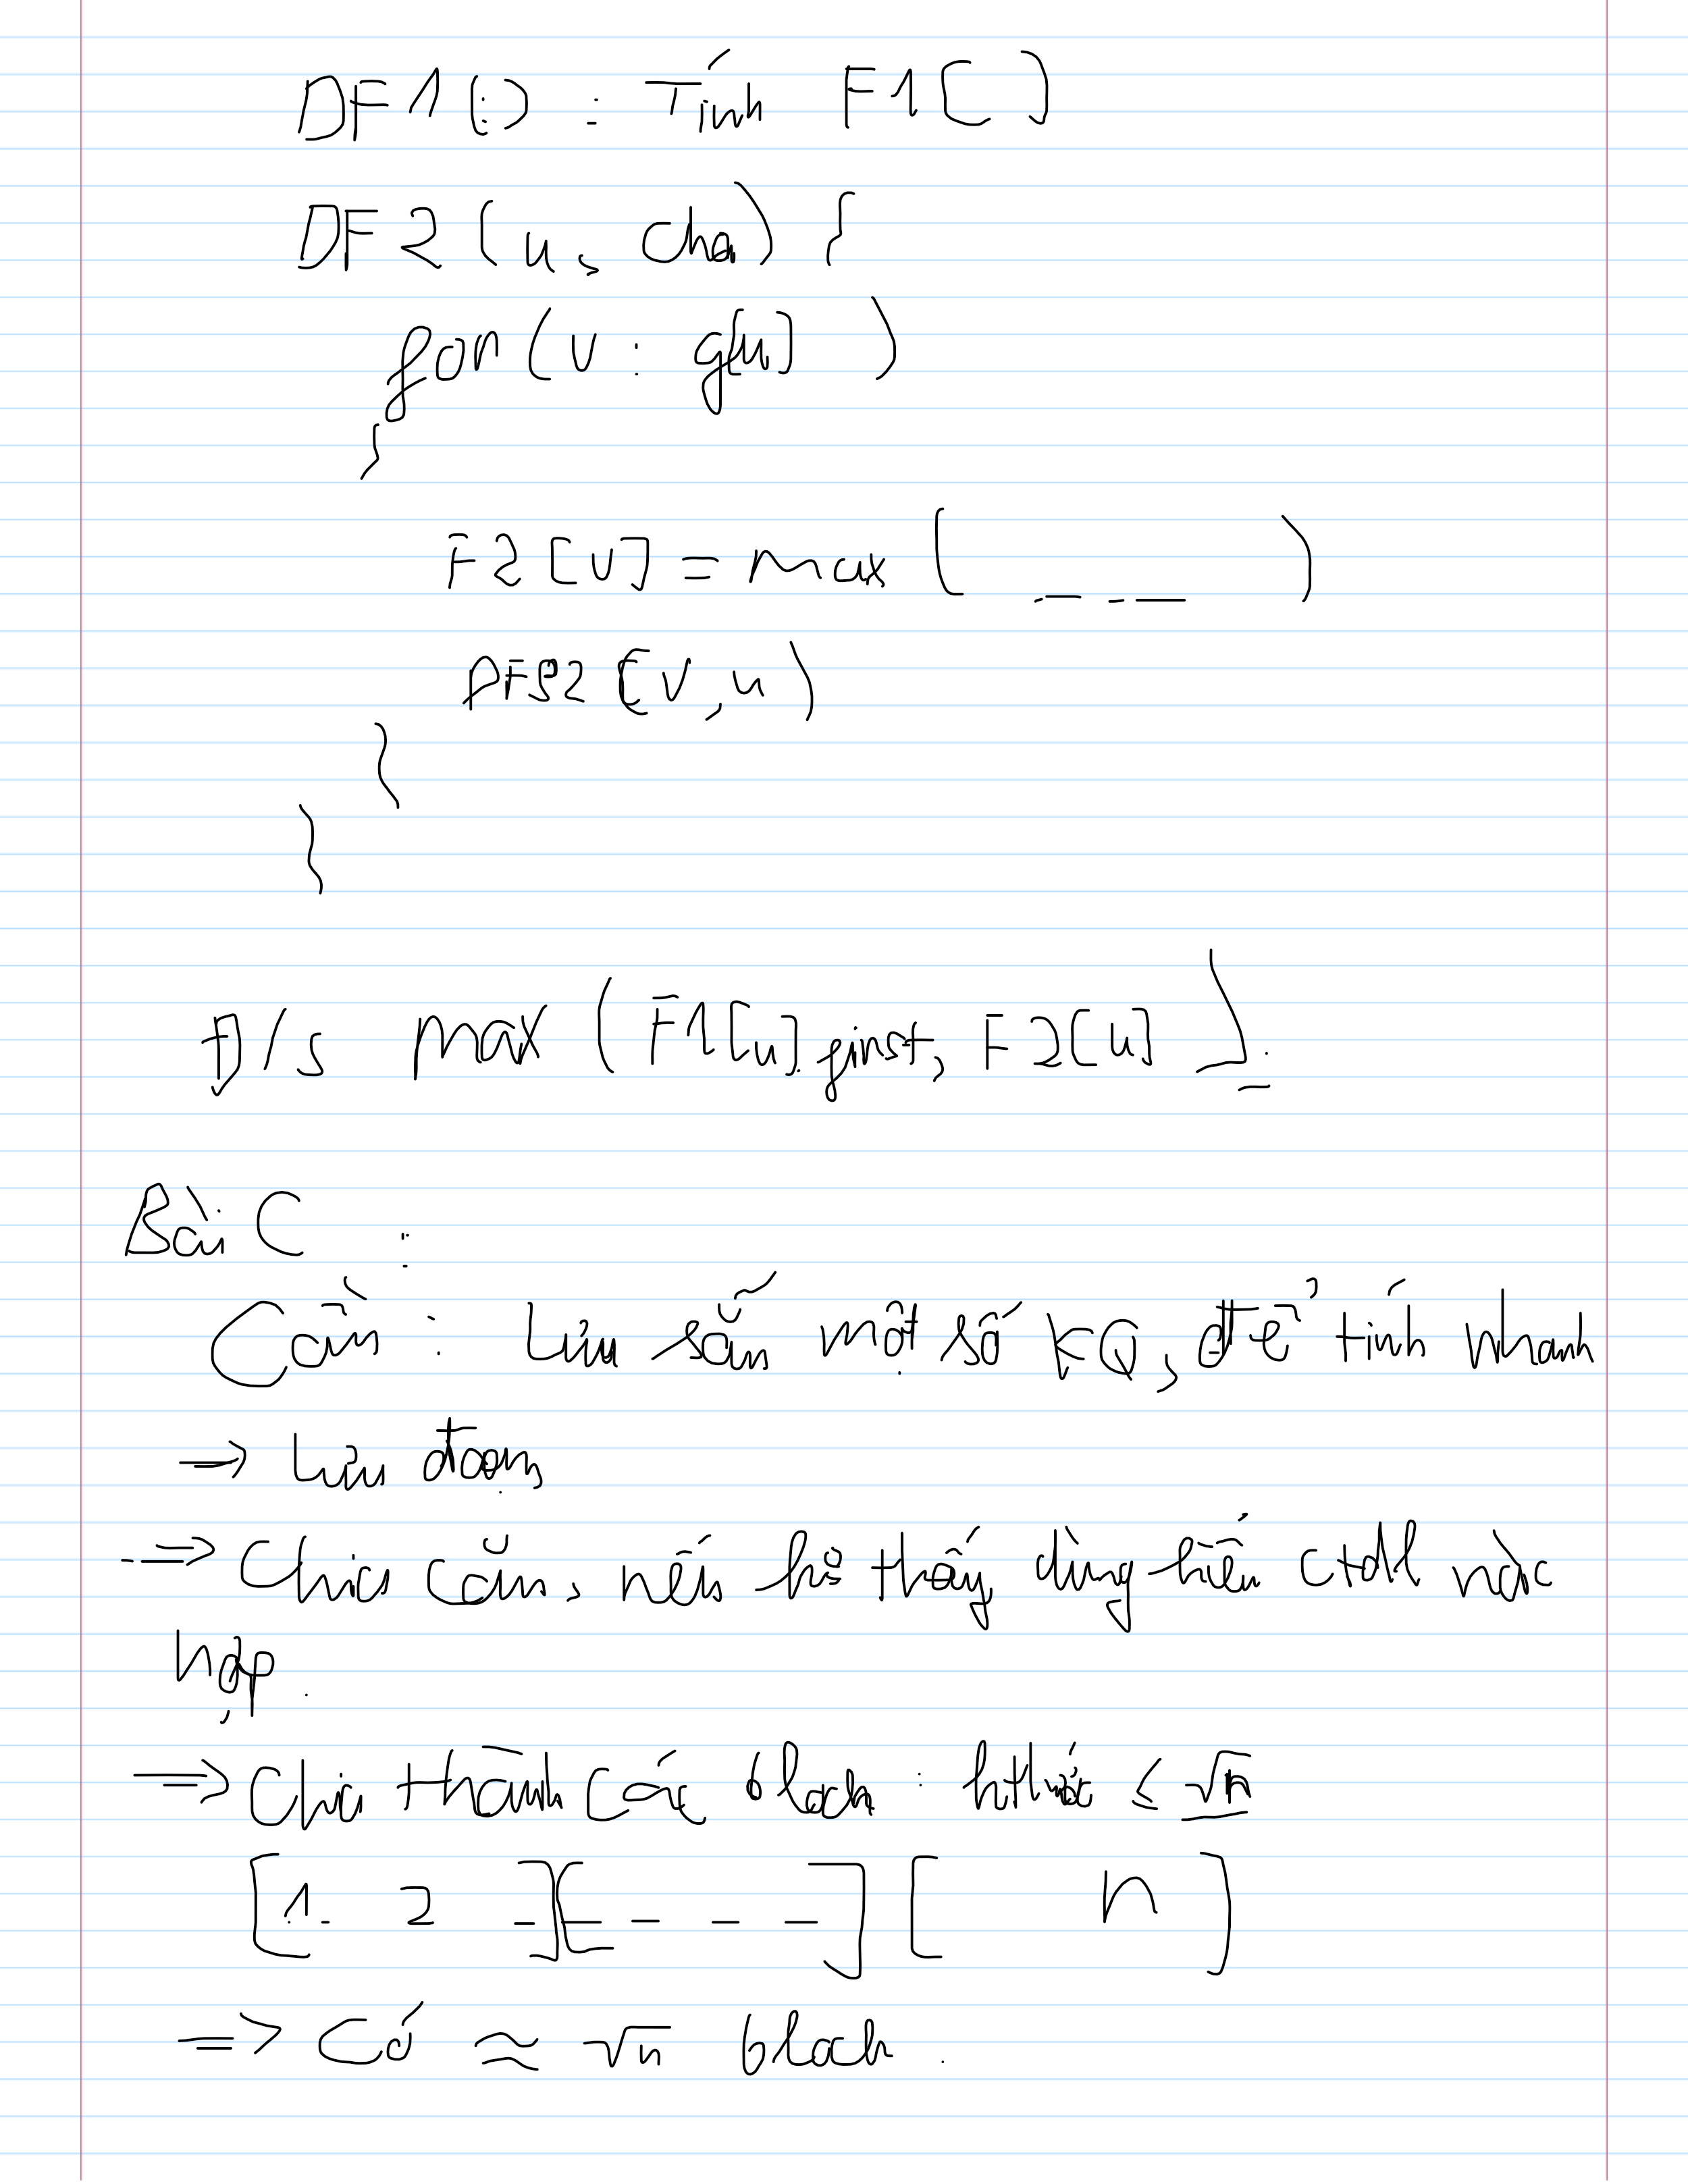 DF1(:) : Tính F1[ ]
DF2(u, cha) {
for(v : g[u] )
{
F2[v] = max( _ _ _ _ )
DFS2(v, u)
}
}
Đ/s max(F1[u].first, F2[u]).
Bài C :
Cần : Lưu sẵn một số KQ, để tính nhanh
=> Lưu đoạn
=> Chia căn, nếu thấy dùng ctdl nào
=> Chia thành các block : kthước ≤ √n
[1. 2 _][_ _ _ _] [ n ]
=> Có ≈ √n block.